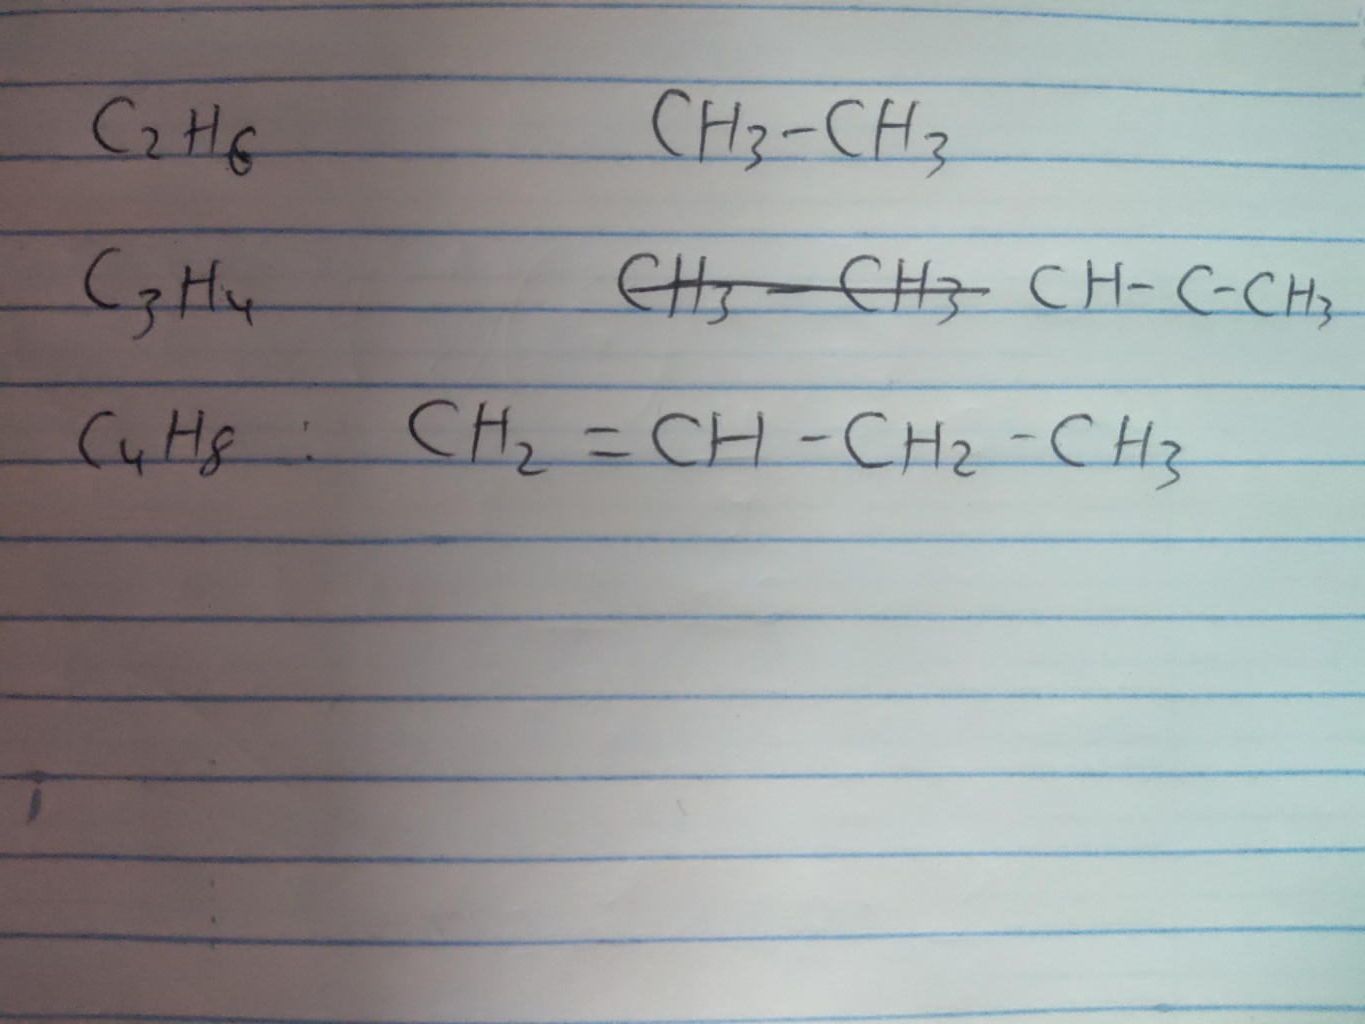 C₂H₆ CH₃-CH₃
C₃H₄ ~~CH₃-CH₃~~ CH-C-CH₃
C₄H₈ : CH₂=CH-CH₂-CH₃